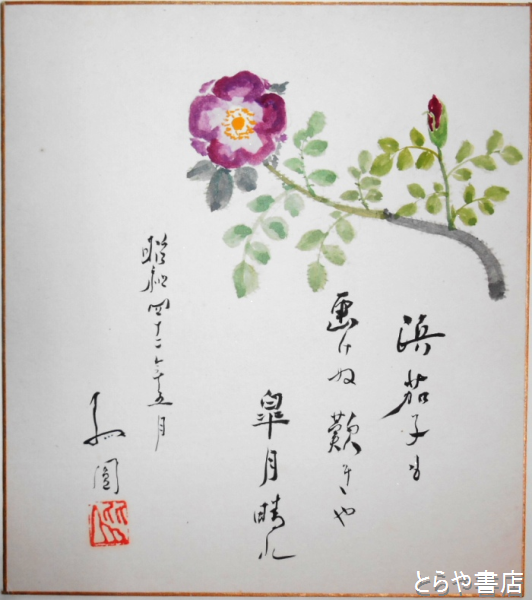 浜茄子も
画けぬ歎きや
皐月晴れ
昭和四十二年五月
とらや書店